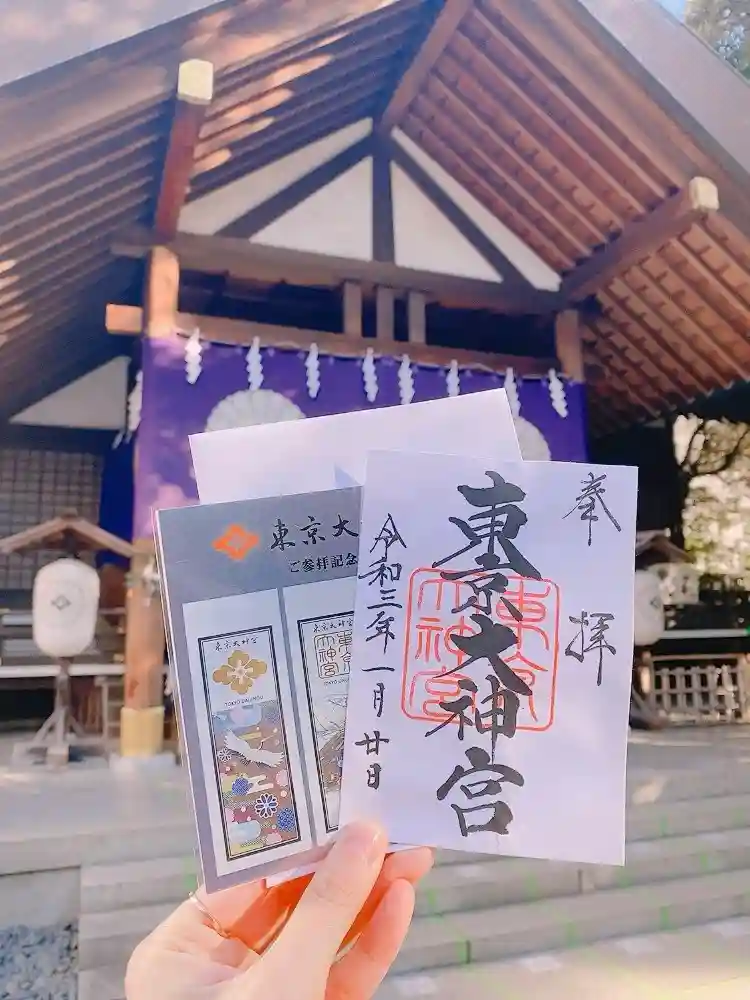 奉拝
東京大神宮
東京大神宮
令和三年一月廿日
東京大
ご参拝記念
東京大神宮
TOKYO DAIJINGU
東京大神宮